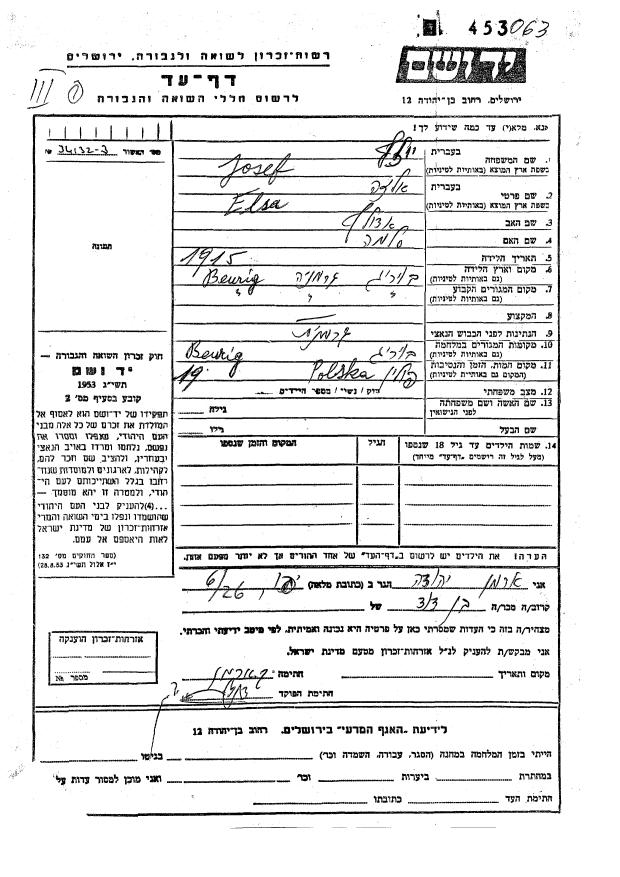 453063
ידושם
ירושלים, רחוב בן־יהודה 12
רשות־זכרון לשואה ולגבורה, ירושלים
דף־עד
לרשום חללי השואה והגבורה
III
נא, מלא(י) עד כמה שידוע לך!
מס' האשור
תמונה
1. שם המשפחה בעברית
(בשפת ארץ המוצא (באותיות לטיניות Josef
2. שם פרטי בעברית
(בשפת ארץ המוצא (באותיות לטיניות Elsa
3. שם האב
4. שם האם
5. תאריך הלידה 1915
6. מקום וארץ הלידה גרמניה Beurig
(גם באותיות לטיניות)
7. מקום המגורים הקבוע
(גם באותיות לטיניות)
8. המקצוע —
9. הנתינות לפני הכבוש הנאצי גרמנית
10. מקומות המגורים במלחמה Beurig
(גם באותיות לטיניות)
11. מקום המות, הזמן והנסיבות פולין Polska 19
(המקום גם באותיות לטיניות)
12. מצב משפחתי רווק / נשוי / מספר הילדים
13. שם האשה ושם משפחתה לפני הנישואין גילה
שם הבעל גילו
14. שמות הילדים עד גיל 18 שנספו
(מעל לגיל זה רושמים "דף־עד" מיוחד)
הגיל
המקום והזמן שנספו
חוק זכרון השואה והגבורה —
יד ושם
תשי"ג 1953
קובע בסעיף מס' 2
תפקידו של יד־ושם הוא לאסוף אל
המולדת את זכרם של כל אלה מבני
העם היהודי, שנפלו ומסרו את
נפשם, נלחמו ומרדו באויב הנאצי
ובעוזריו, ולהציב שם וזכר להם,
לקהילות, לארגונים ולמוסדות שנח־
רבו בגלל השתייכותם לעם הי־
הודי, ולמטרה זו יהא מוסמך —
...(4) להעניק לבני העם היהודי
שהושמדו ונפלו בימי השואה והמרי
אזרחות־זכרון של מדינת ישראל
לאות היאספם אל עמם.
(ספר החוקים מס' 132
י"ז אלול תשי"ג 28.8.53)
הערה: את הילדים יש לרשום ב"דף־העד" של אחד ההורים אך לא יותר מפעם אחת.
אני ארמן יהודה הגר ב (כתובת מלאה) 26/6
קרוב/ה מכר/ה בן דוד של
מצהיר/ה בזה כי העדות שמסרתי כאן על פרטיה היא נכונה ואמיתית, לפי מיטב ידיעתי והכרתי.
אני מבקש/ת להעניק לנ"ל אזרחות־זכרון מטעם מדינת ישראל.
מקום ותאריך חתימה
חתימת הפוקד
אזרחות־זכרון הוענקה
מספר №
לידיעת "האגף המדעי" בירושלים, רחוב בן־יהודה 12
הייתי בזמן המלחמה במחנה (הסגר, עבודה, השמדה וכו') בגיטו
במחתרת ביערות וכו' ואני מוכן למסור עדות על
חתימת העד כתובתו